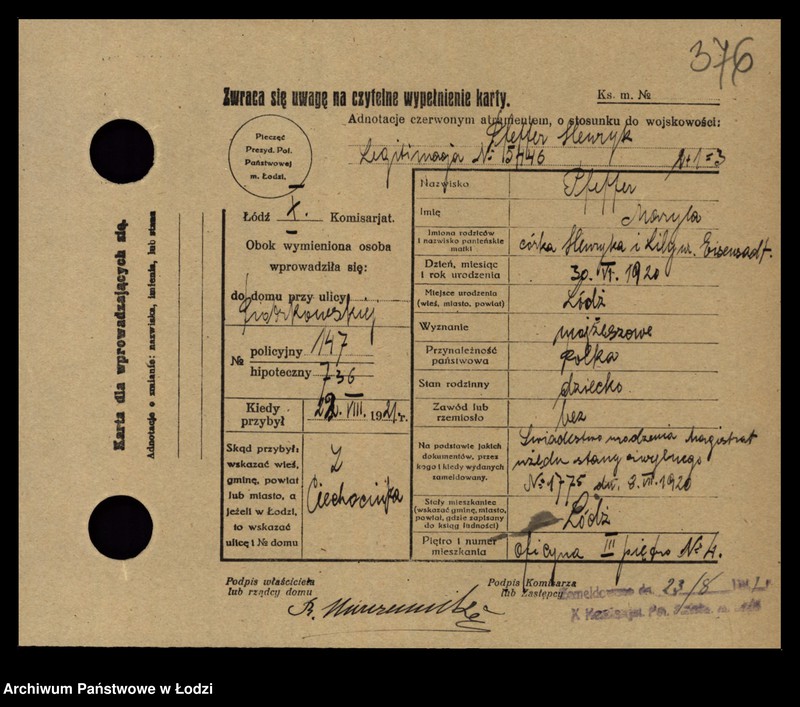 376
Zwraca się uwagę na czytelne wypełnienie karty.
Ks. m. №
Adnotacje czerwonym atramentem, o stosunku do wojskowości:
Pfeffer Henryk
Legitimacja № 15146 2+1=3
Pieczęć
Prezyd. Pol.
Państwowej
m. Łodzi.
Łódź X. Komisarjat.
Obok wymieniona osoba
wprowadziła się:
do domu przy ulicy
Piotrkowskiej
№ policyjny 147
hipoteczny 736
Kiedy przybył 22. VIII. 1921 r.
Skąd przybył:
wskazać wieś,
gminę, powiat
lub miasto, a
jeżeli w Łodzi,
to wskazać
ulicę i № domu
Z
Ciechocinka
Nazwisko Pfeffer
Imię Maryla
Imiona rodziców
i nazwisko panieńskie
matki
córka Henryka i Lili ur. Eisenstadt.
Dzień, miesiąc
i rok urodzenia
30. VI. 1920
Miejsce urodzenia
(wieś, miasto, powiat)
Łódź
Wyznanie mojżeszowe
Przynależność
państwowa
polka
Stan rodzinny dziecko
Zawód lub
rzemiosło
bez
Na podstawie jakich
dokumentów, przez
kogo i kiedy wydanych
zameldowany.
Świadectwo urodzenia Magistrat
urzędu stanu cywilnego
№ 1775 dn. 8. VII. 1920
Stały mieszkaniec
(wskazać gminę, miasto,
powiat, gdzie zapisany
do ksiąg ludności)
Łódź
Piętro i numer
mieszkania
oficyna III piętro № 4.
Podpis właściciela
lub rządcy domu
Podpis Komisarza
lub Zastępcy
Zameldowano dn. 23/8
X Komisarjat Pol.
Karta dla wprowadzających się.
Adnotacje o zmianie: nazwiska, imienia, lub stanu
Archiwum Państwowe w Łodzi